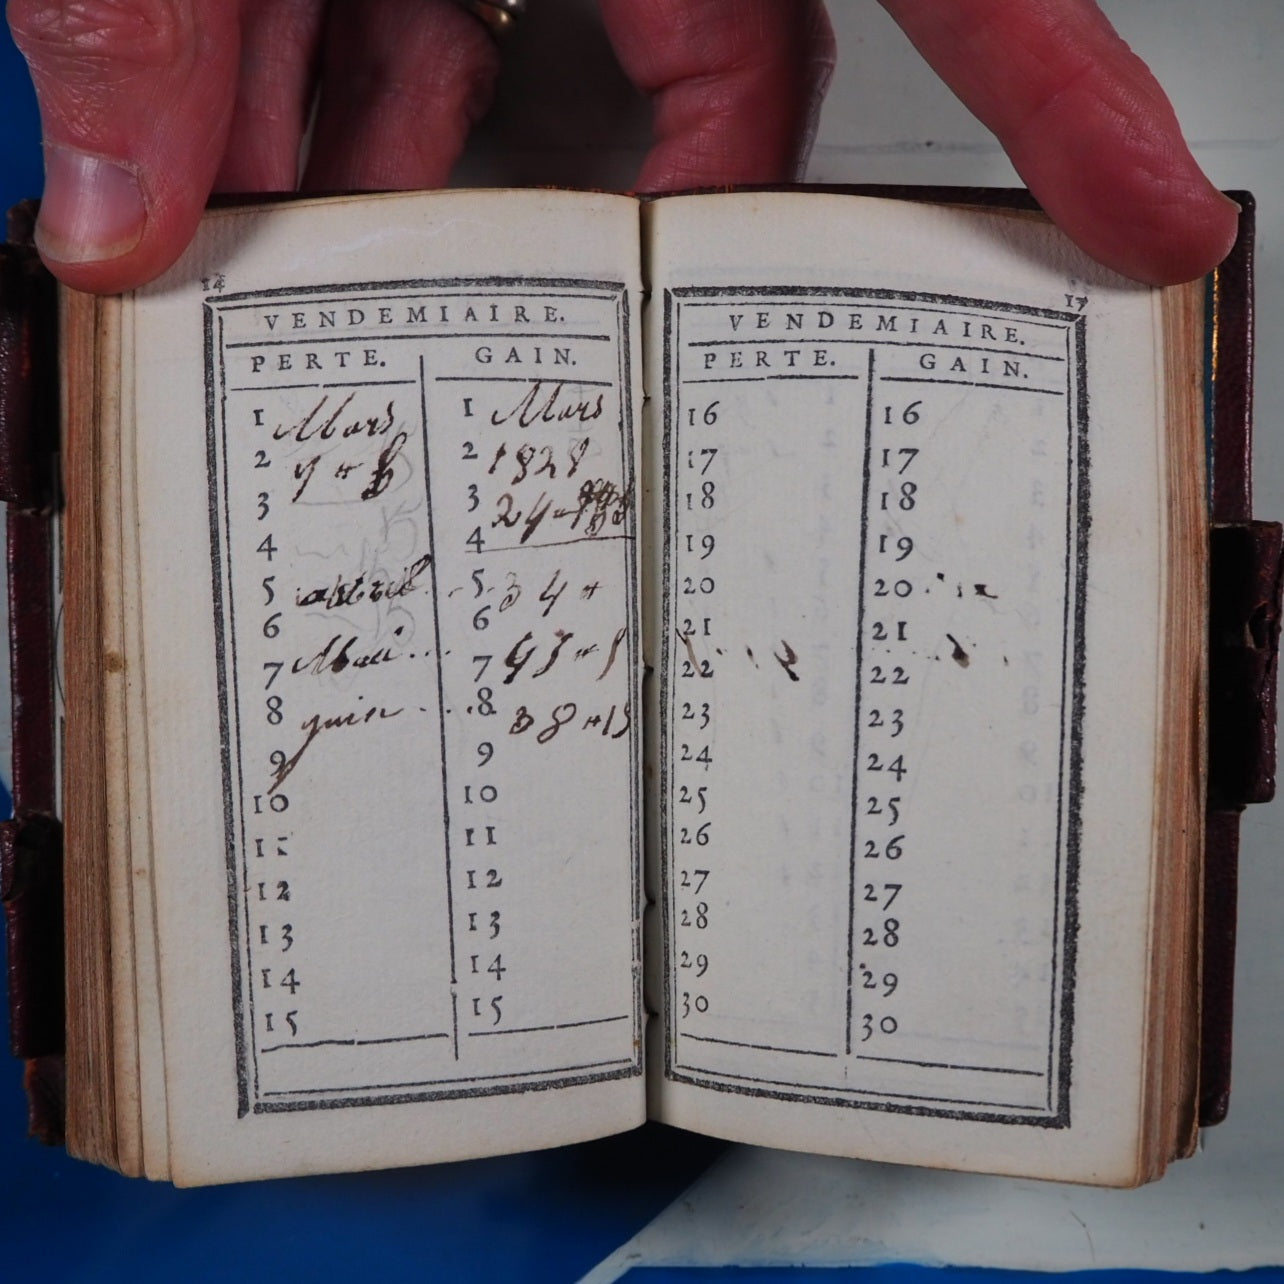 14
VENDEMIAIRE.
PERTE. GAIN.
1 Mars 1 Mars
2 2 1828
3 3 24
4 4
5 5 34
6 6
7 Mai 7
8 juin 8 38
9 9
10 10
11 11
12 12
13 13
14 14
15 15
VENDEMIAIRE.
PERTE. GAIN.
16 16
17 17
18 18
19 19
20 20
21 21
22 22
23 23
24 24
25 25
26 26
27 27
28 28
29 29
30 30